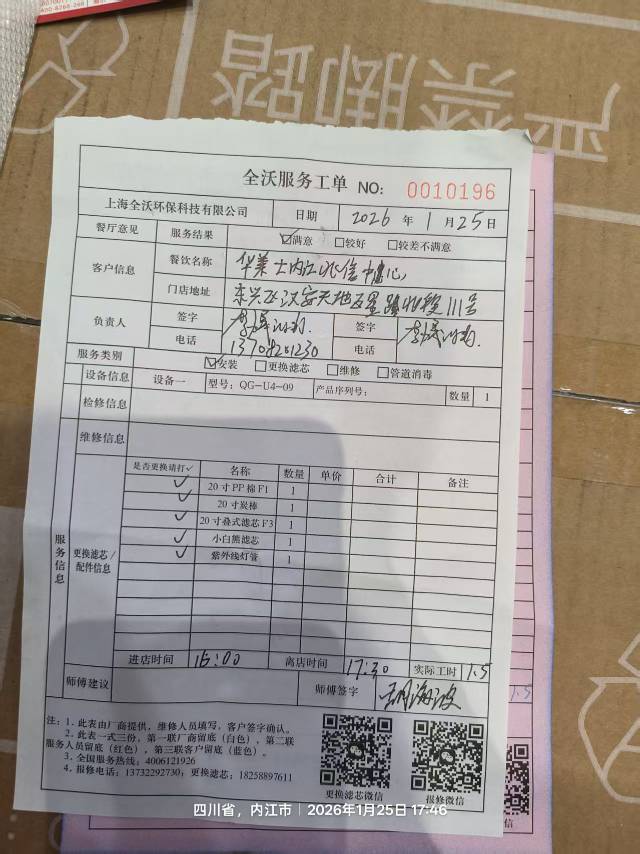 严禁脚踏
全沃服务工单 NO: 0010196
上海全沃环保科技有限公司 日期 2026 年 1 月 25 日
餐厅意见 服务结果 ☑满意 □较好 □较差不满意
客户信息 餐饮名称 华莱士内江兆信中心
门店地址 东兴区汉安天地五星路北段111号
负责人 签字 签字
电话 电话
服务类别 ☑安装 □更换滤芯 □维修 □管道消毒
设备信息 设备一 型号: QG-U4-09 产品序列号: 数量 1
检修信息
维修信息
服务信息
更换滤芯/配件信息
是否更换请打✓ 名称 数量 单价 合计 备注
✓ 20寸PP棉F1 1
✓ 20寸炭棒 1
✓ 20寸叠式滤芯F3 1
✓ 小白熊滤芯 1
✓ 紫外线灯管 1
进店时间 16:00 离店时间 17:30 实际工时 1.5
师傅建议 师傅签字
注: 1. 此表由厂商提供, 维修人员填写, 客户签字确认。
2. 此表一式三份, 第一联厂商留底 (白色), 第二联
服务人员留底 (红色), 第三联客户留底 (蓝色)。
3. 全国服务热线: 4006121926
4. 报修电话: 13732292730; 更换滤芯: 18258897611
更换滤芯微信 报修微信
四川省, 内江市 | 2026年1月25日 17:46